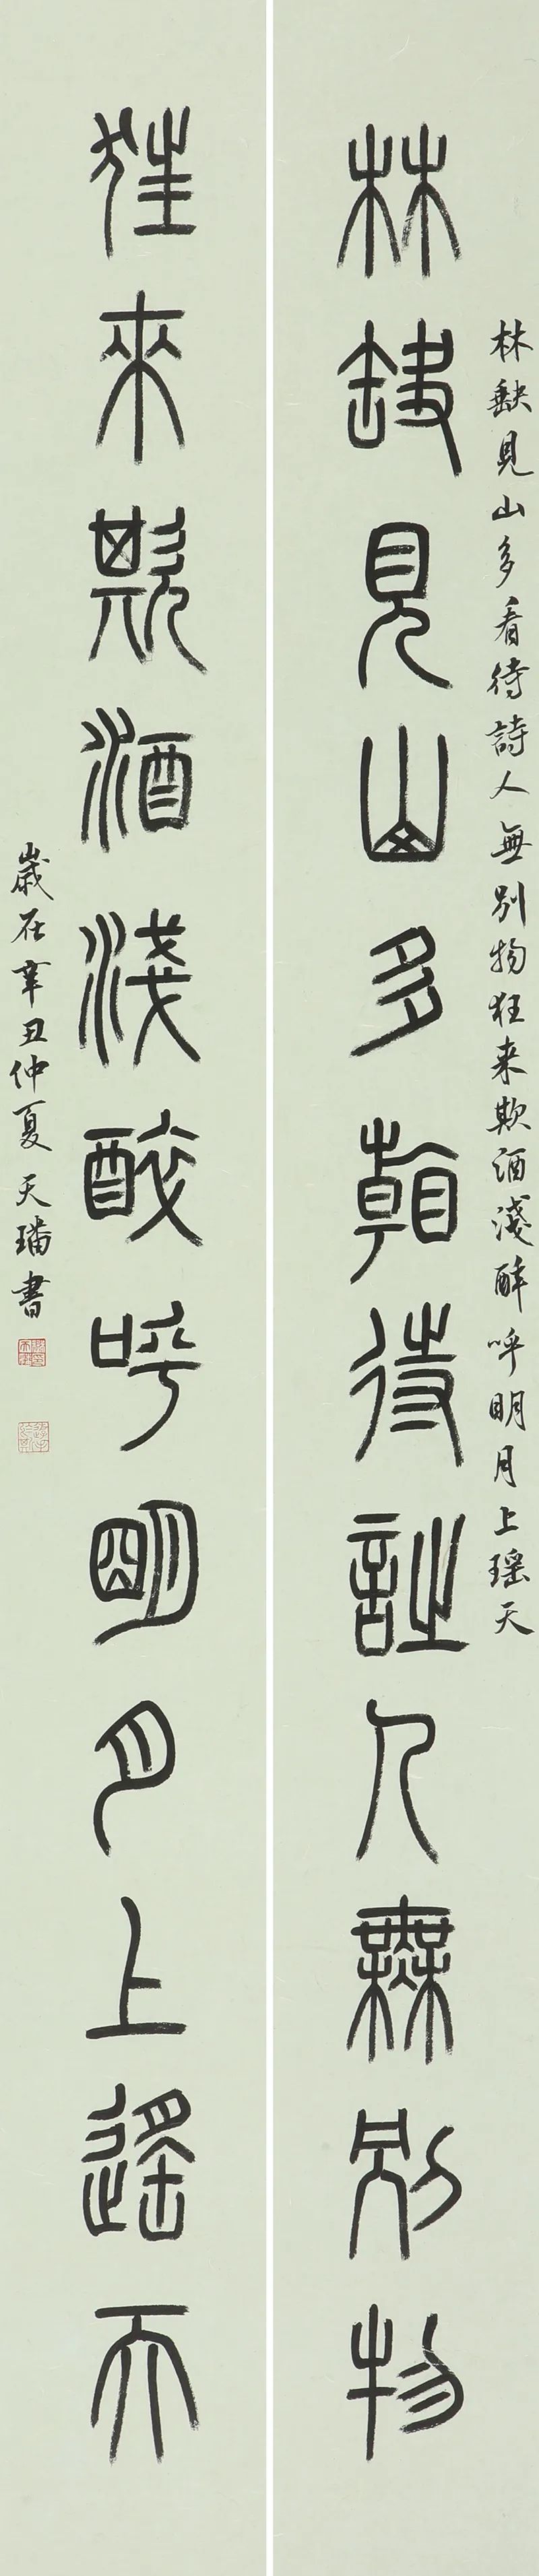 林缺見山多看待詩人無別物狂来欺酒淺醉呼明月上瑶天
林缺見山多看待詩人無別物
狂來欺酒淺醉呼明月上遙天
歲在辛丑仲夏天璠書